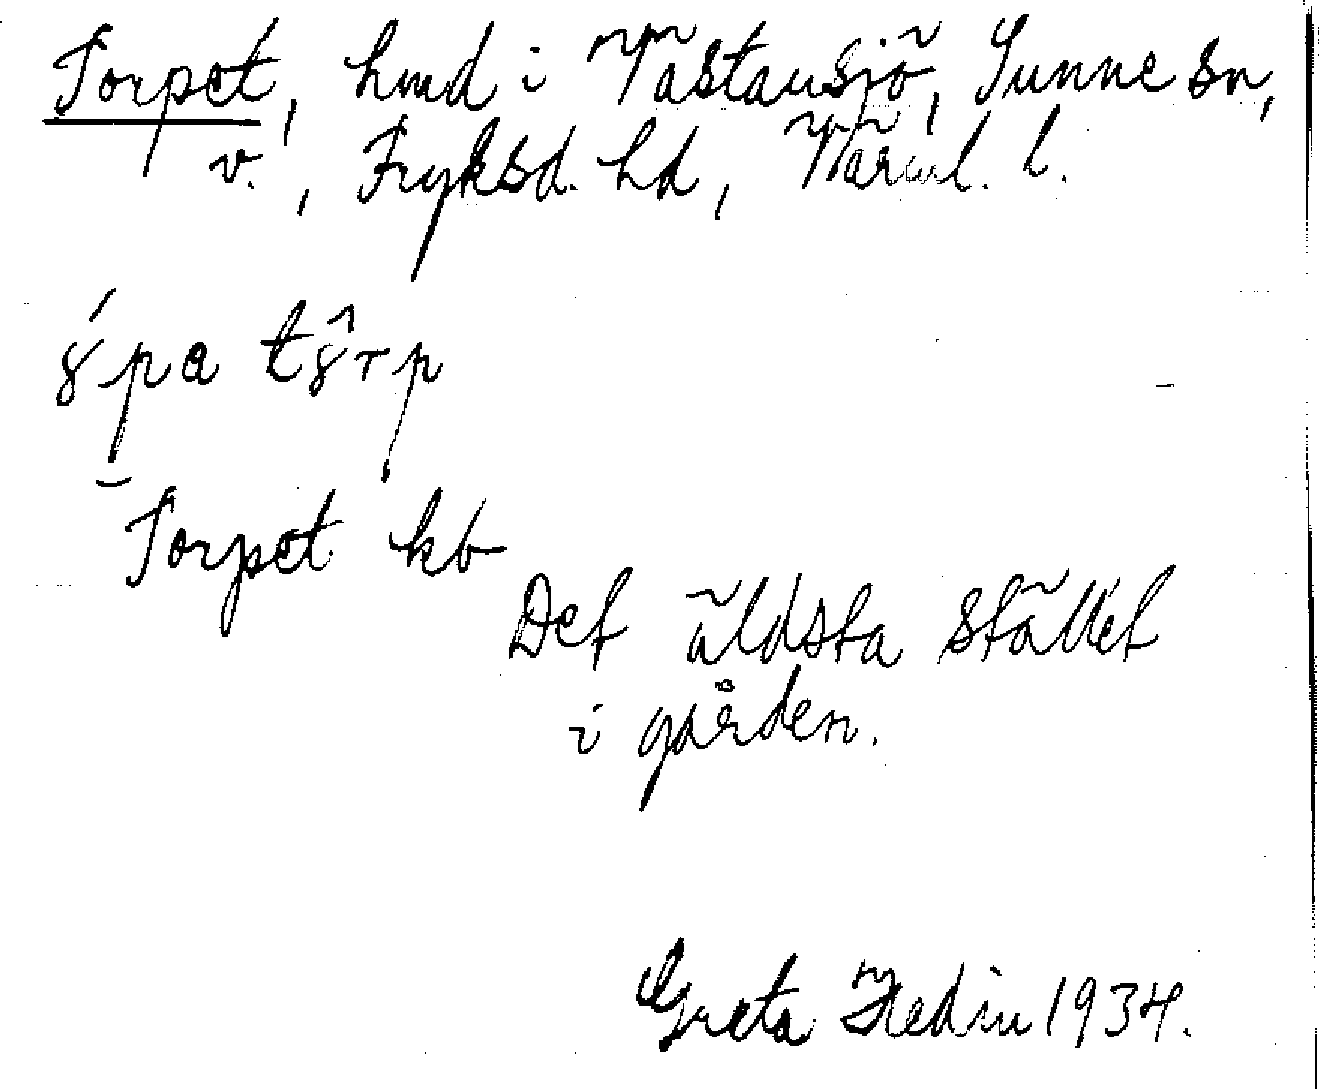 Torpet, hmd i Västansjö, Sunne sn,
v., Fryksd. hd, Värml. l.
pa
Torpet kb
Det äldsta stället
i gården.
Greta Hedin 1934.